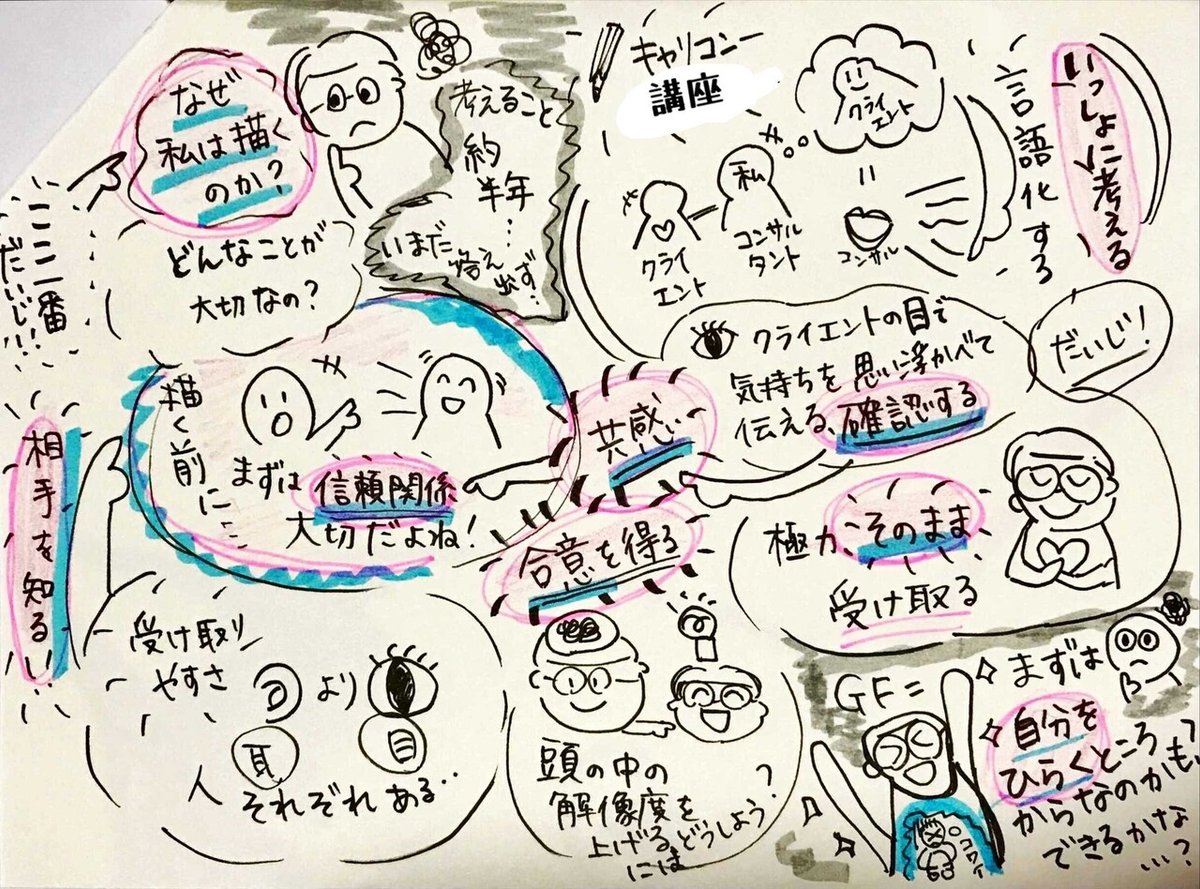 なぜ
私は描く
のか?
どんなことが
大切なの?
ここ一番
だいじ!!
考えること
約
半年
…
いまだ答え
出ず…
キャリコン
講座
クライ
エント
私
クライ
エント
コンサル
タント
コンサル
言語化する
いっしょに考える
描く前に…
まずは信頼関係
大切だよね!
共感
クライエントの目で
気持ちを思い浮かべて
伝える、確認する
だいじ!
極力、そのまま
受け取る
合意を得る
相手を知る
受け取り
やすさ
より
耳
目
人それぞれある..
頭の中の
解像度を
上げる
には
どうしよう?
GF=
まずは
自分を
ひらくところ
からなのかも?
できるかな
…?
コワイ